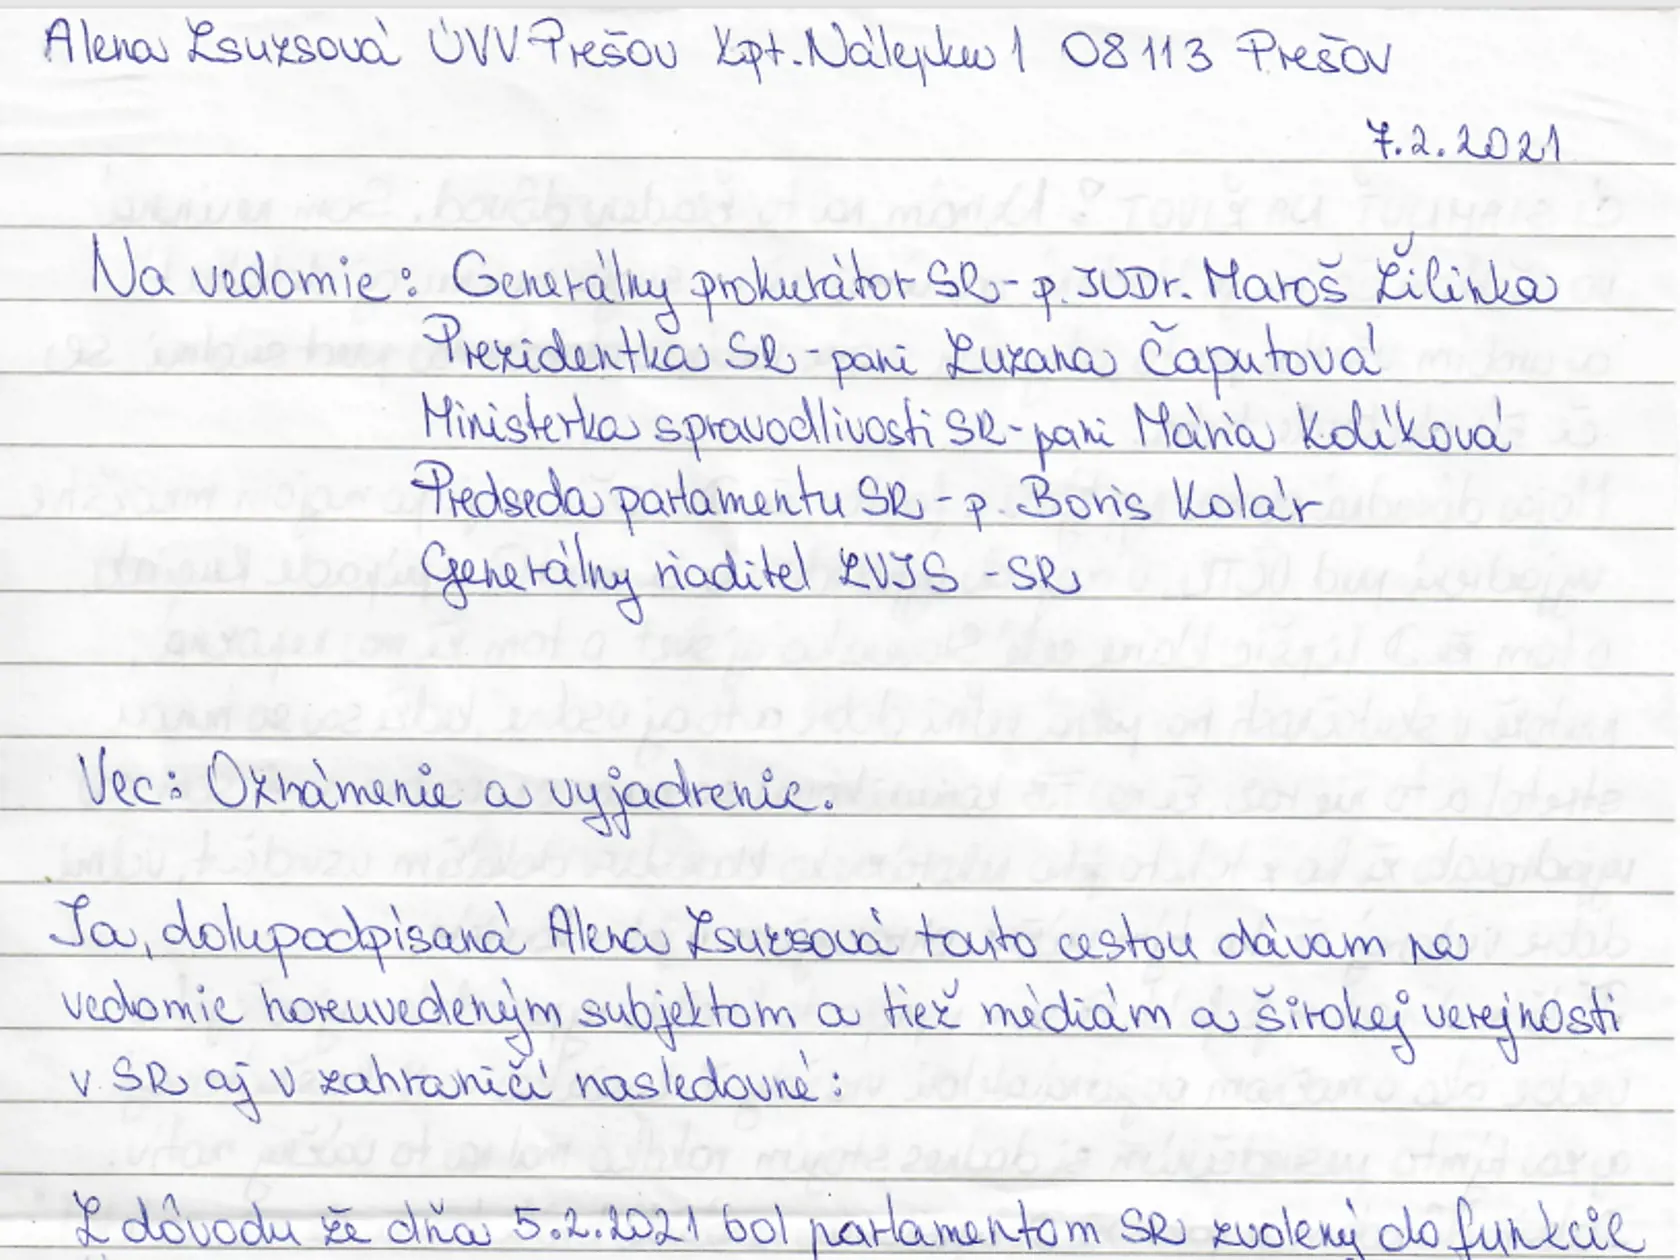 Alena Zsuzsová ÚVV Prešov Kpt. Nálepku 1 08113 Prešov
7.2.2021
Na vedomie: Generálny prokurátor SR - p. JUDr. Maroš Žilinka
Prezidentka SR - pani Zuzana Čaputová
Ministerka spravodlivosti SR - pani Mária Kolíková
Predseda parlamentu SR - p. Boris Kolár
Generálny riaditel ZVJS - SR
Vec: Oznámenie a vyjadrenie.
Ja, dolupodpísaná Alena Zsuzsová touto cestou dávam na
vedomie horeuvedeným subjektom a tiež médiám a širokej verejnosti
v SR aj v zahraničí nasledovné:
Z dôvodu že dňa 5.2.2021 bol parlamentom SR zvolený do funkcie